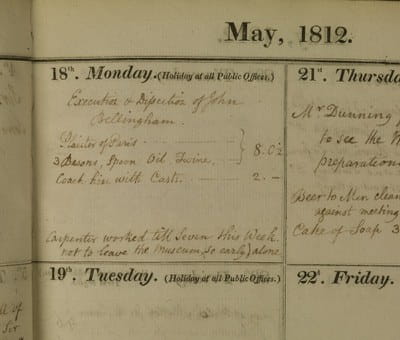 May, 1812.
18th. Monday. (Holiday at all Public Offices.)
Execution & Dissection of John
Bellingham.
Plaister of Paris
3 Basons, Spoon Oil, Twine. } 8.0½
Coach hire with Casts. 2. -
Carpenter worked till Seven this Week
not to leave the Museum, so early) alone.
19th. Tuesday. (Holiday at all Public Offices.)
21st. Thursda
Mr Dunning
to see the
preparation
Beer to Men clean
against meeting
Cake of Soap 3
22d. Friday.